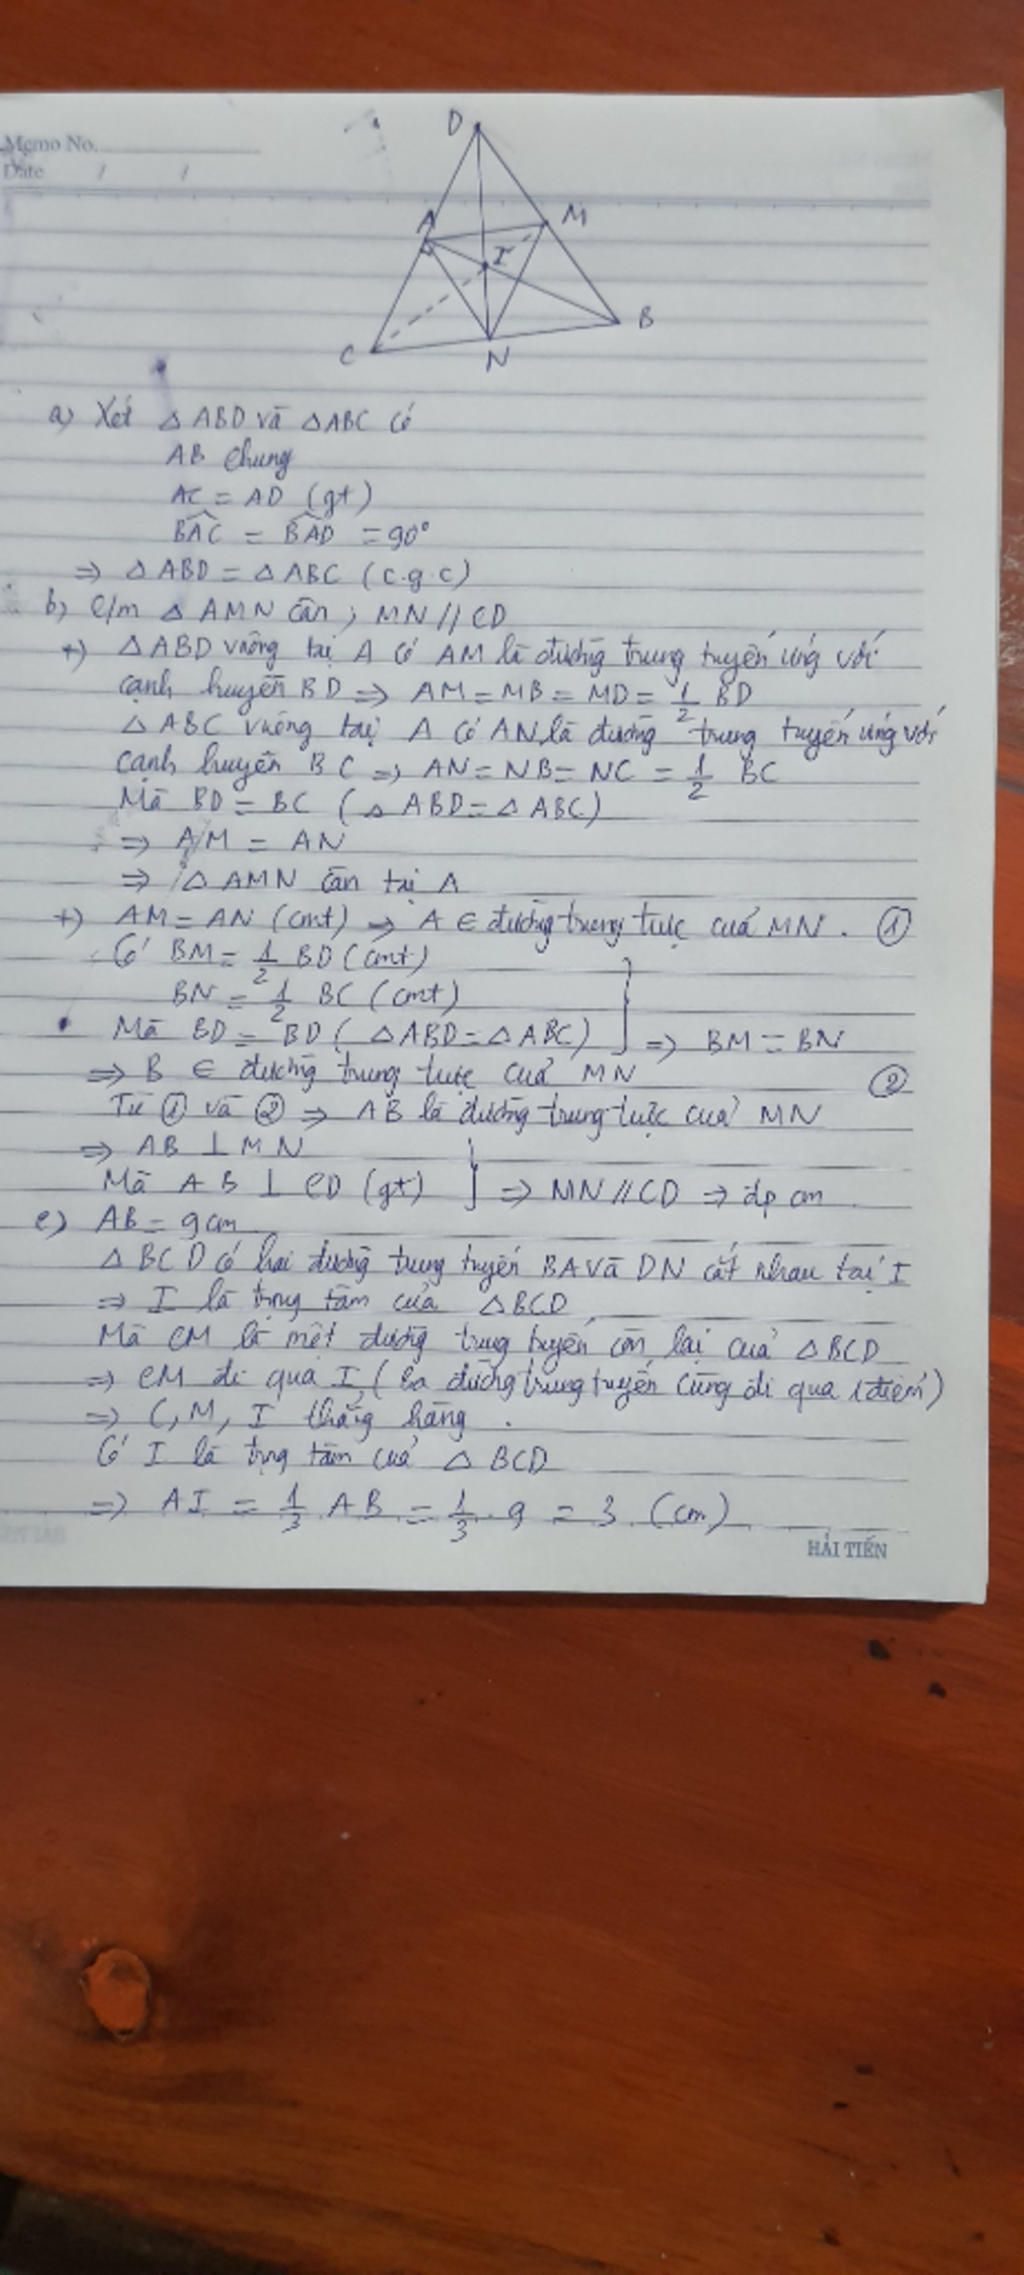 Memo No.
Date / /
D
A
M
I
B
C
N
a) Xét △ ABD và △ ABC có
AB chung
AC = AD (gt)
BAC = BAD = 90°
⇒ △ ABD = △ ABC (c.g.c)
b) C/m △ AMN cân ; MN // CD
+) △ ABD vuông tại A có AM là đường trung tuyến ứng với
cạnh huyền BD ⇒ AM = MB = MD = 1/2 BD
△ ABC vuông tại A có AN là đường trung tuyến ứng với
cạnh huyền BC ⇒ AN = NB = NC = 1/2 BC
Mà BD = BC ( △ ABD = △ ABC)
⇒ AM = AN
⇒ △ AMN cân tại A
+) AM = AN (cmt) ⇒ A ∈ đường trung trực của MN . ①
Có BM = 1/2 BD (cmt)
BN = 1/2 BC (cmt)
Mà BD = BD ( △ ABD = △ ABC) } ⇒ BM = BN
⇒ B ∈ đường trung trực của MN ②
Từ ① và ② ⇒ AB là đường trung trực của MN
⇒ AB ⊥ MN
Mà AB ⊥ CD (gt) } ⇒ MN // CD ⇒ đpcm
c) AB = 9cm
△ BCD có hai đường trung tuyến BA và DN cắt nhau tại I
⇒ I là trọng tâm của △ BCD
Mà CM là một đường trung tuyến còn lại của △ BCD
⇒ CM đi qua I ( Ba đường trung tuyến cùng đi qua 1 điểm)
⇒ C, M, I thẳng hàng .
Có I là trọng tâm của △ BCD
⇒ AI = 1/3 AB = 1/3 . 9 = 3 (cm)
HẢI TIẾN